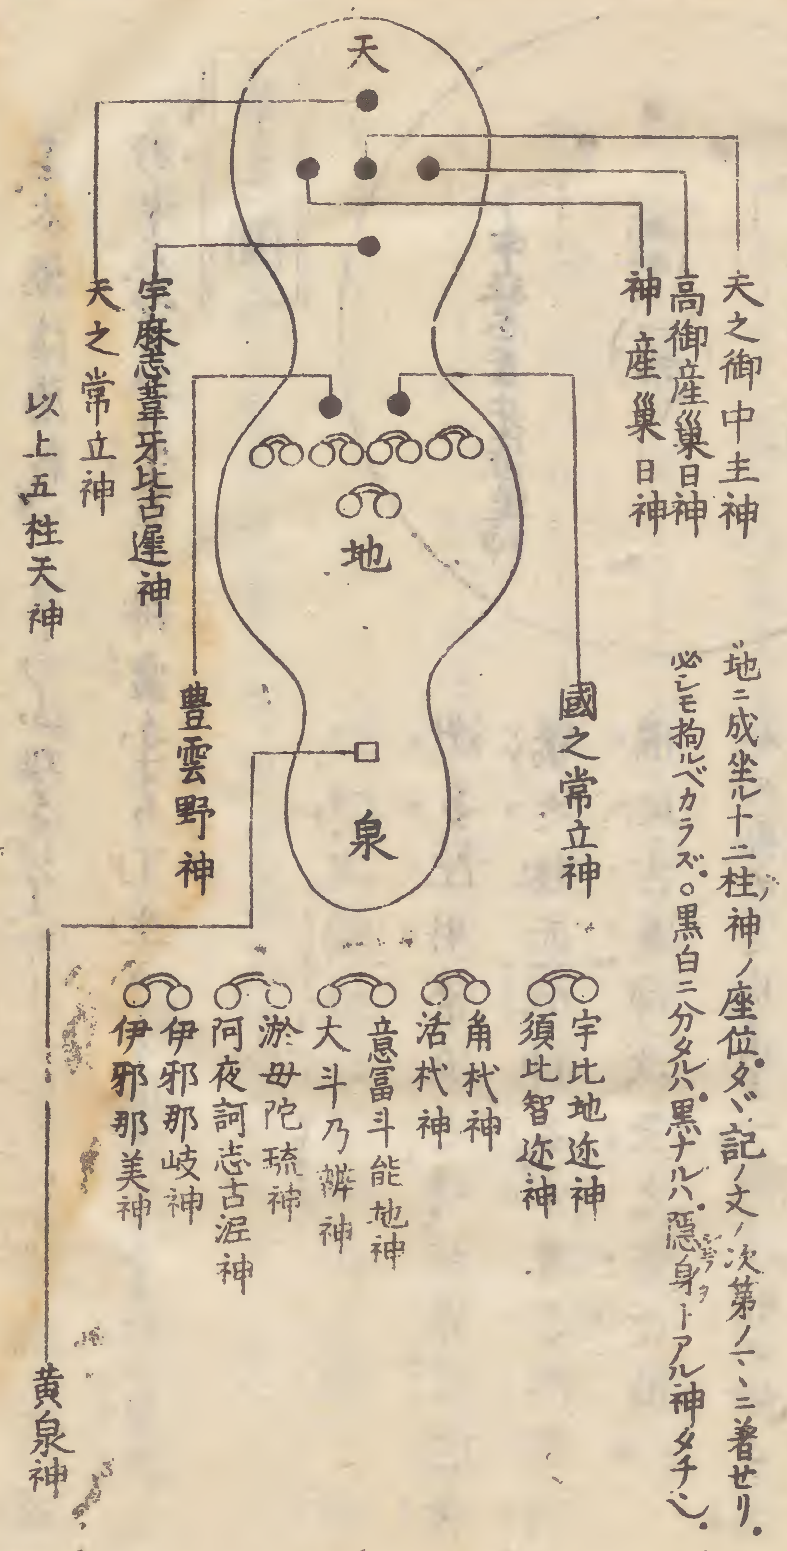 天
天之御中主神
高御産巣日神
神産巣日神
宇麻志葦牙比古遅神
天之常立神
以上五柱天神
地
國之常立神
豊雲野神
泉
地ニ成坐ル十二柱神ノ座位タヾ記ノ文ノ次第ノマヽニ着せリ。
必シモ拘ルベカラズ。○黒白ニ分タルハ。黒ナルハ。隠身トアル神タチ也。
宇比地迩神
須比智迩神
角杙神
活杙神
意冨斗能地神
大斗乃辨神
淤母陀琉神
阿夜訶志古泥神
伊邪那岐神
伊邪那美神
黄泉神